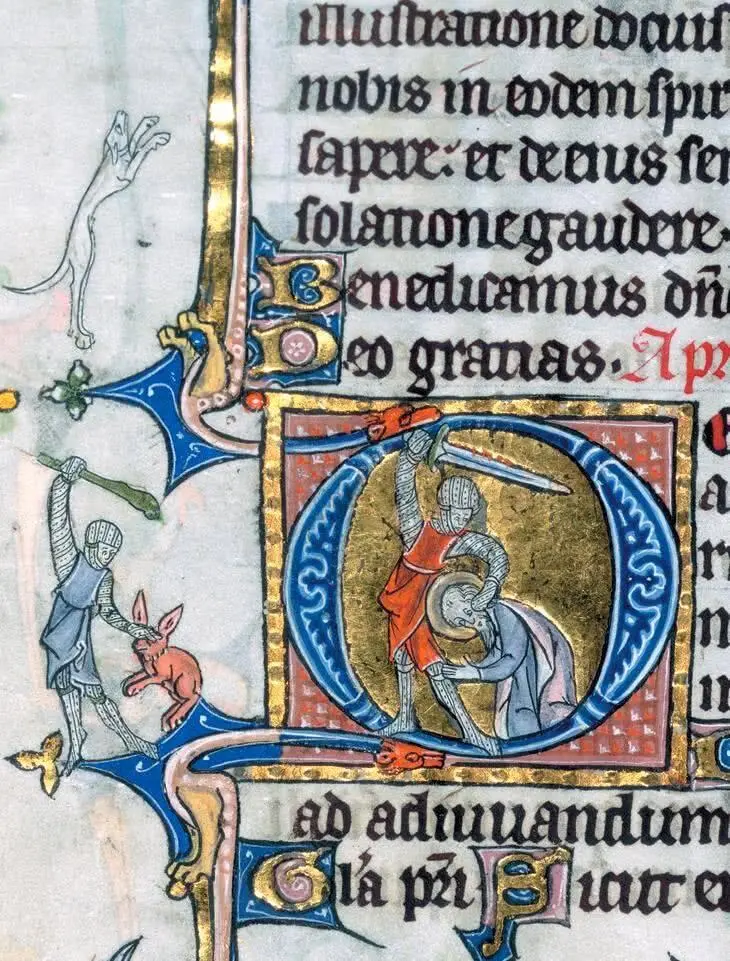 illustratione docuis
nobis in eodem spir
sapere: et de eius sen
solatione gaudere.
Benedicamus dñ
Deo gratias. Apr
D
a
ad adiuuandum
Gla pri Sicut er